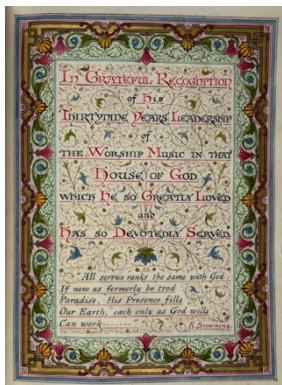 In Grateful Recognition
of His
Thirtynine Years Leadership
of
the Worship Music in that
House of God
which He so Greatly Loved
and
Has so Devotedly Served.
All service ranks the same with God:
If now as formerly he trod
Paradise, His Presence fills
Our Earth, each only as God wills
Can work......
R. Browning.